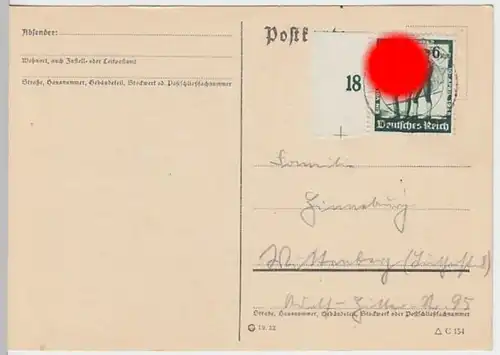 Absender:
Wohnort, auch Zustell- oder Leitpostamt
Straße, Hausnummer, Gebäudeteil, Stockwerk od. Postschließfachnummer
Postk
18
6
Deutsches Reich
Familie
Hinneburg
Wittenberg (Lutherst
Adolf-Hitler-Str. 95
Straße, Hausnummer, Gebäudeteil, Stockwerk oder Postschließfachnummer
C 154